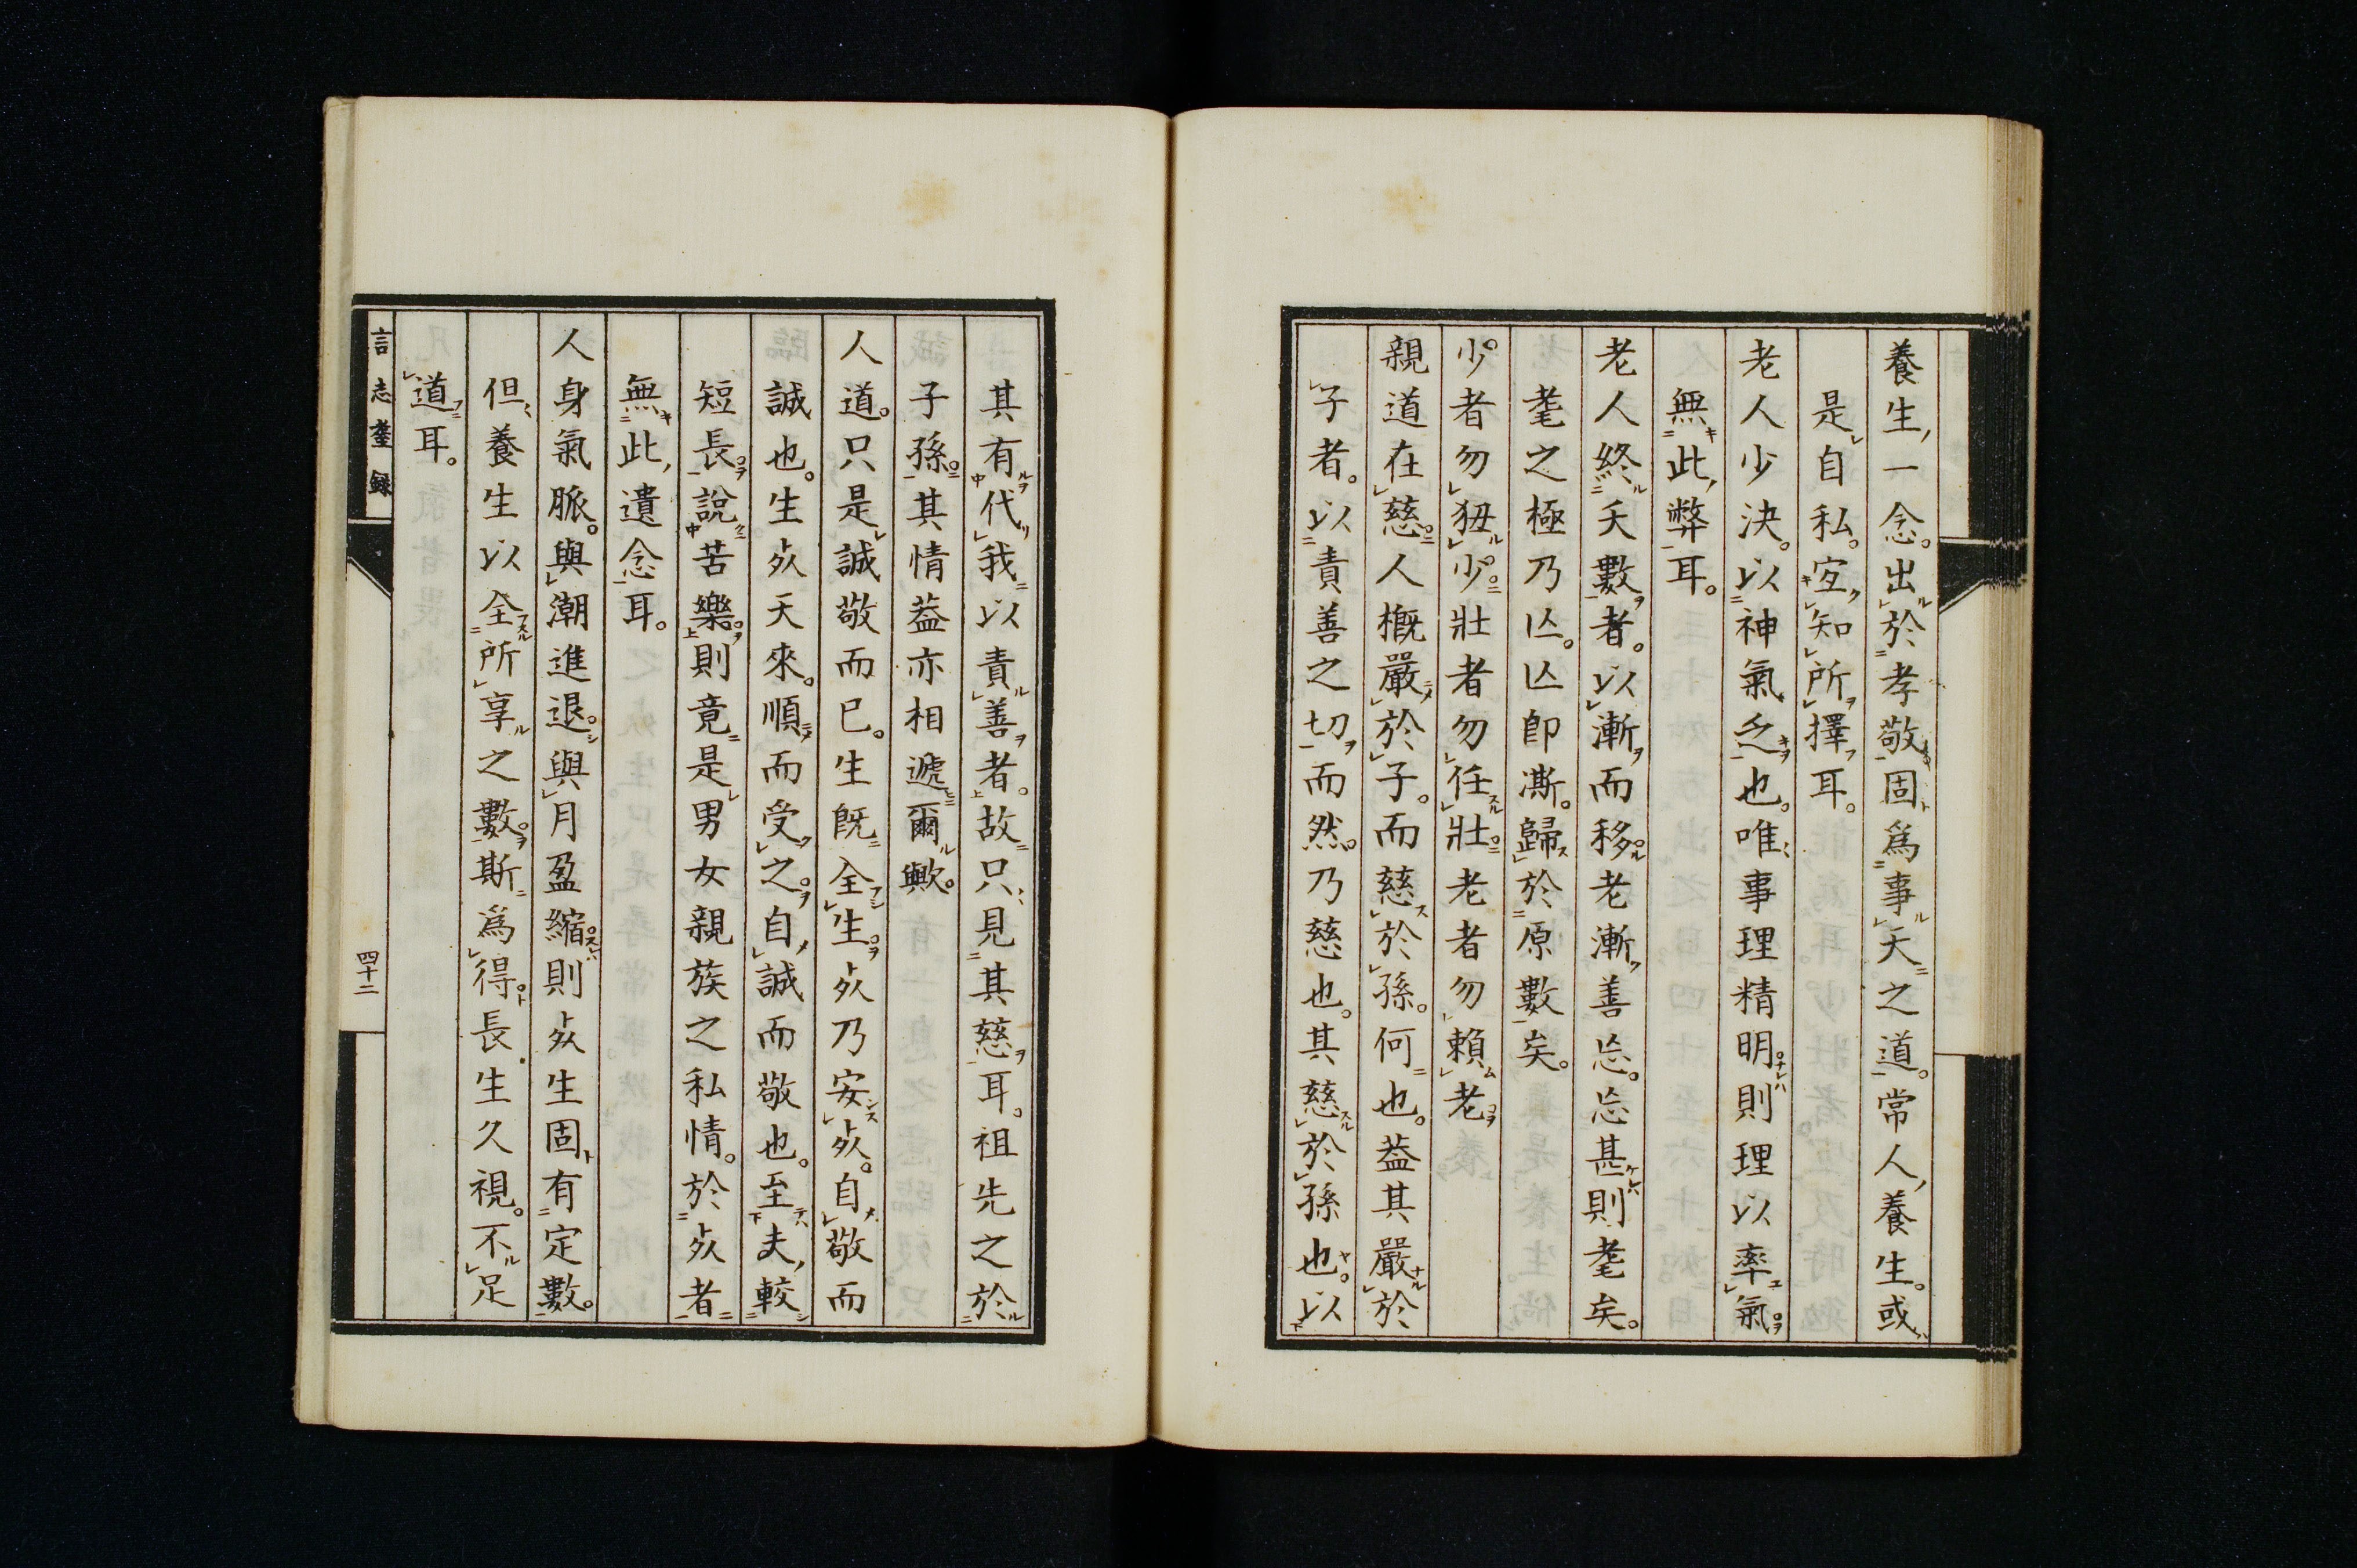 養生一念。出於孝敬固爲事天之道。常人養生。或
是自私。宜知所擇耳。
老人少決。以神氣乏也。唯事理精明則理以率氣
無此弊耳。
老人終天數者。以漸而移。老漸善忘。忘甚則耄矣。
耄之極乃亾。亾卽澌。歸於原數矣。
少者勿狃少。壯者勿任壯。老者勿賴老。
親道在慈。人概嚴於子。而慈於孫。何也。蓋其嚴於
子者。以責善之切而然。乃慈也。其慈於孫也。以
其有代我以責善者。故只見其慈耳。祖先之於
子孫。其情蓋亦相遞爾歟。
人道。只是誠敬而已。生既全生。死乃安死。自敬而
誠也。生死天來。順而受之。自誠而敬也。至夫較
短長。說苦樂。則竟是男女親族之私情。於死者
無此遺念耳。
人身氣脈。與潮進退。與月盈縮。則死生固有定數。
但養生以全所享之數。斯爲得。長生久視。不足
道耳。
言志耋錄
四十二